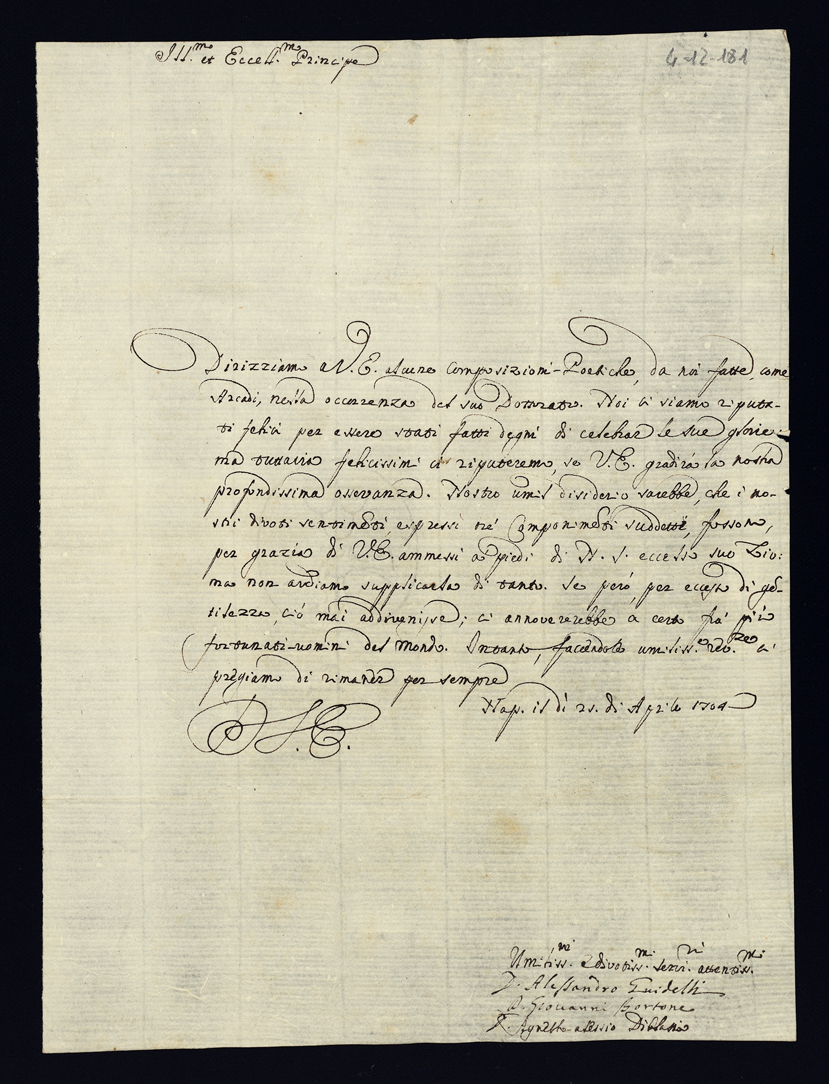 Ill.mo et Eccell.mo Principe
4-12-181
Dirizziamo a V. E. alcune composizioni Poetiche, da noi fatte, come
Arcadi, nella occorrenza del suo Dottorato. Noi ci siamo riputa-
ti felici per essere stati fatti degni di celebrar le sue glorie:
ma tuttavia felicissimi ci riputeremo, se V. E. gradirà la nostra
profondissima osservanza. Nostro umil disiderio sarebbe, che i no-
stri divoti sentimēti, espressi ne' Componimēti suddetti, fossono,
per grazia di V. E. ammessi a' piedi di N. S. eccelso suo Zio:
ma non ardiamo supplicarla di tanto. Se però, per eccesso di gē-
tilezza, ciò mai addivenisse; ci annoverebbe a certo fra' più
fortunati uomini del mondo. Intanto, facēdole umiliss.e rev.ze ci
pregiamo di rimaner per sempre
Nap. il dì 21. di Aprile 1704
D. V. E.
Umiliss.mi e divotiss.mi serv.ri attentiss.mi
D. Alessandro Guidelli
D. Giovanni Bortone
D. Agnello Alessio